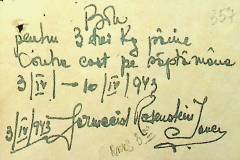 Bon 357
pentru 3 trei Kg pâine
Contra cost pe săptămâna
3/IV/ — 10/IV/943
3/IV/943 Rosenstein